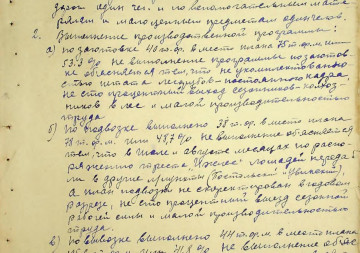 один чел. и по вспомогательным мате
риалам и малоценным предметам один челов.
2. Выполнение производственной программы:
а) по заготовке 40 т.ф.м. вместо плана 75 т.ф.м. или
53,3% не выполнение программы по заготов
ке объясняется тем, что не укомплектован
штата лесорубов постоянного кадра,
не сто процентный выход сезонников-колхоз
ников в лес и малой производительностью
труда.
б) по подвозке выполнено 38 т.ф.м. вместо плана
78 т.ф.м. или 48,7% не выполнение объясняется
тем, что в июле и августе месяцах по распо
ряжению треста "Ижлес" лошадей переда
ли в другие лесопункты (Постольский и Увинский),
а план подвозки не скорректирован в годовом
разрезе, не сто процентный выезд сезонной
рабочей силы и малой производительностью
труда.
в) по вывозке выполнено 44 т.ф.м. вместо плана
не выполнение объяс